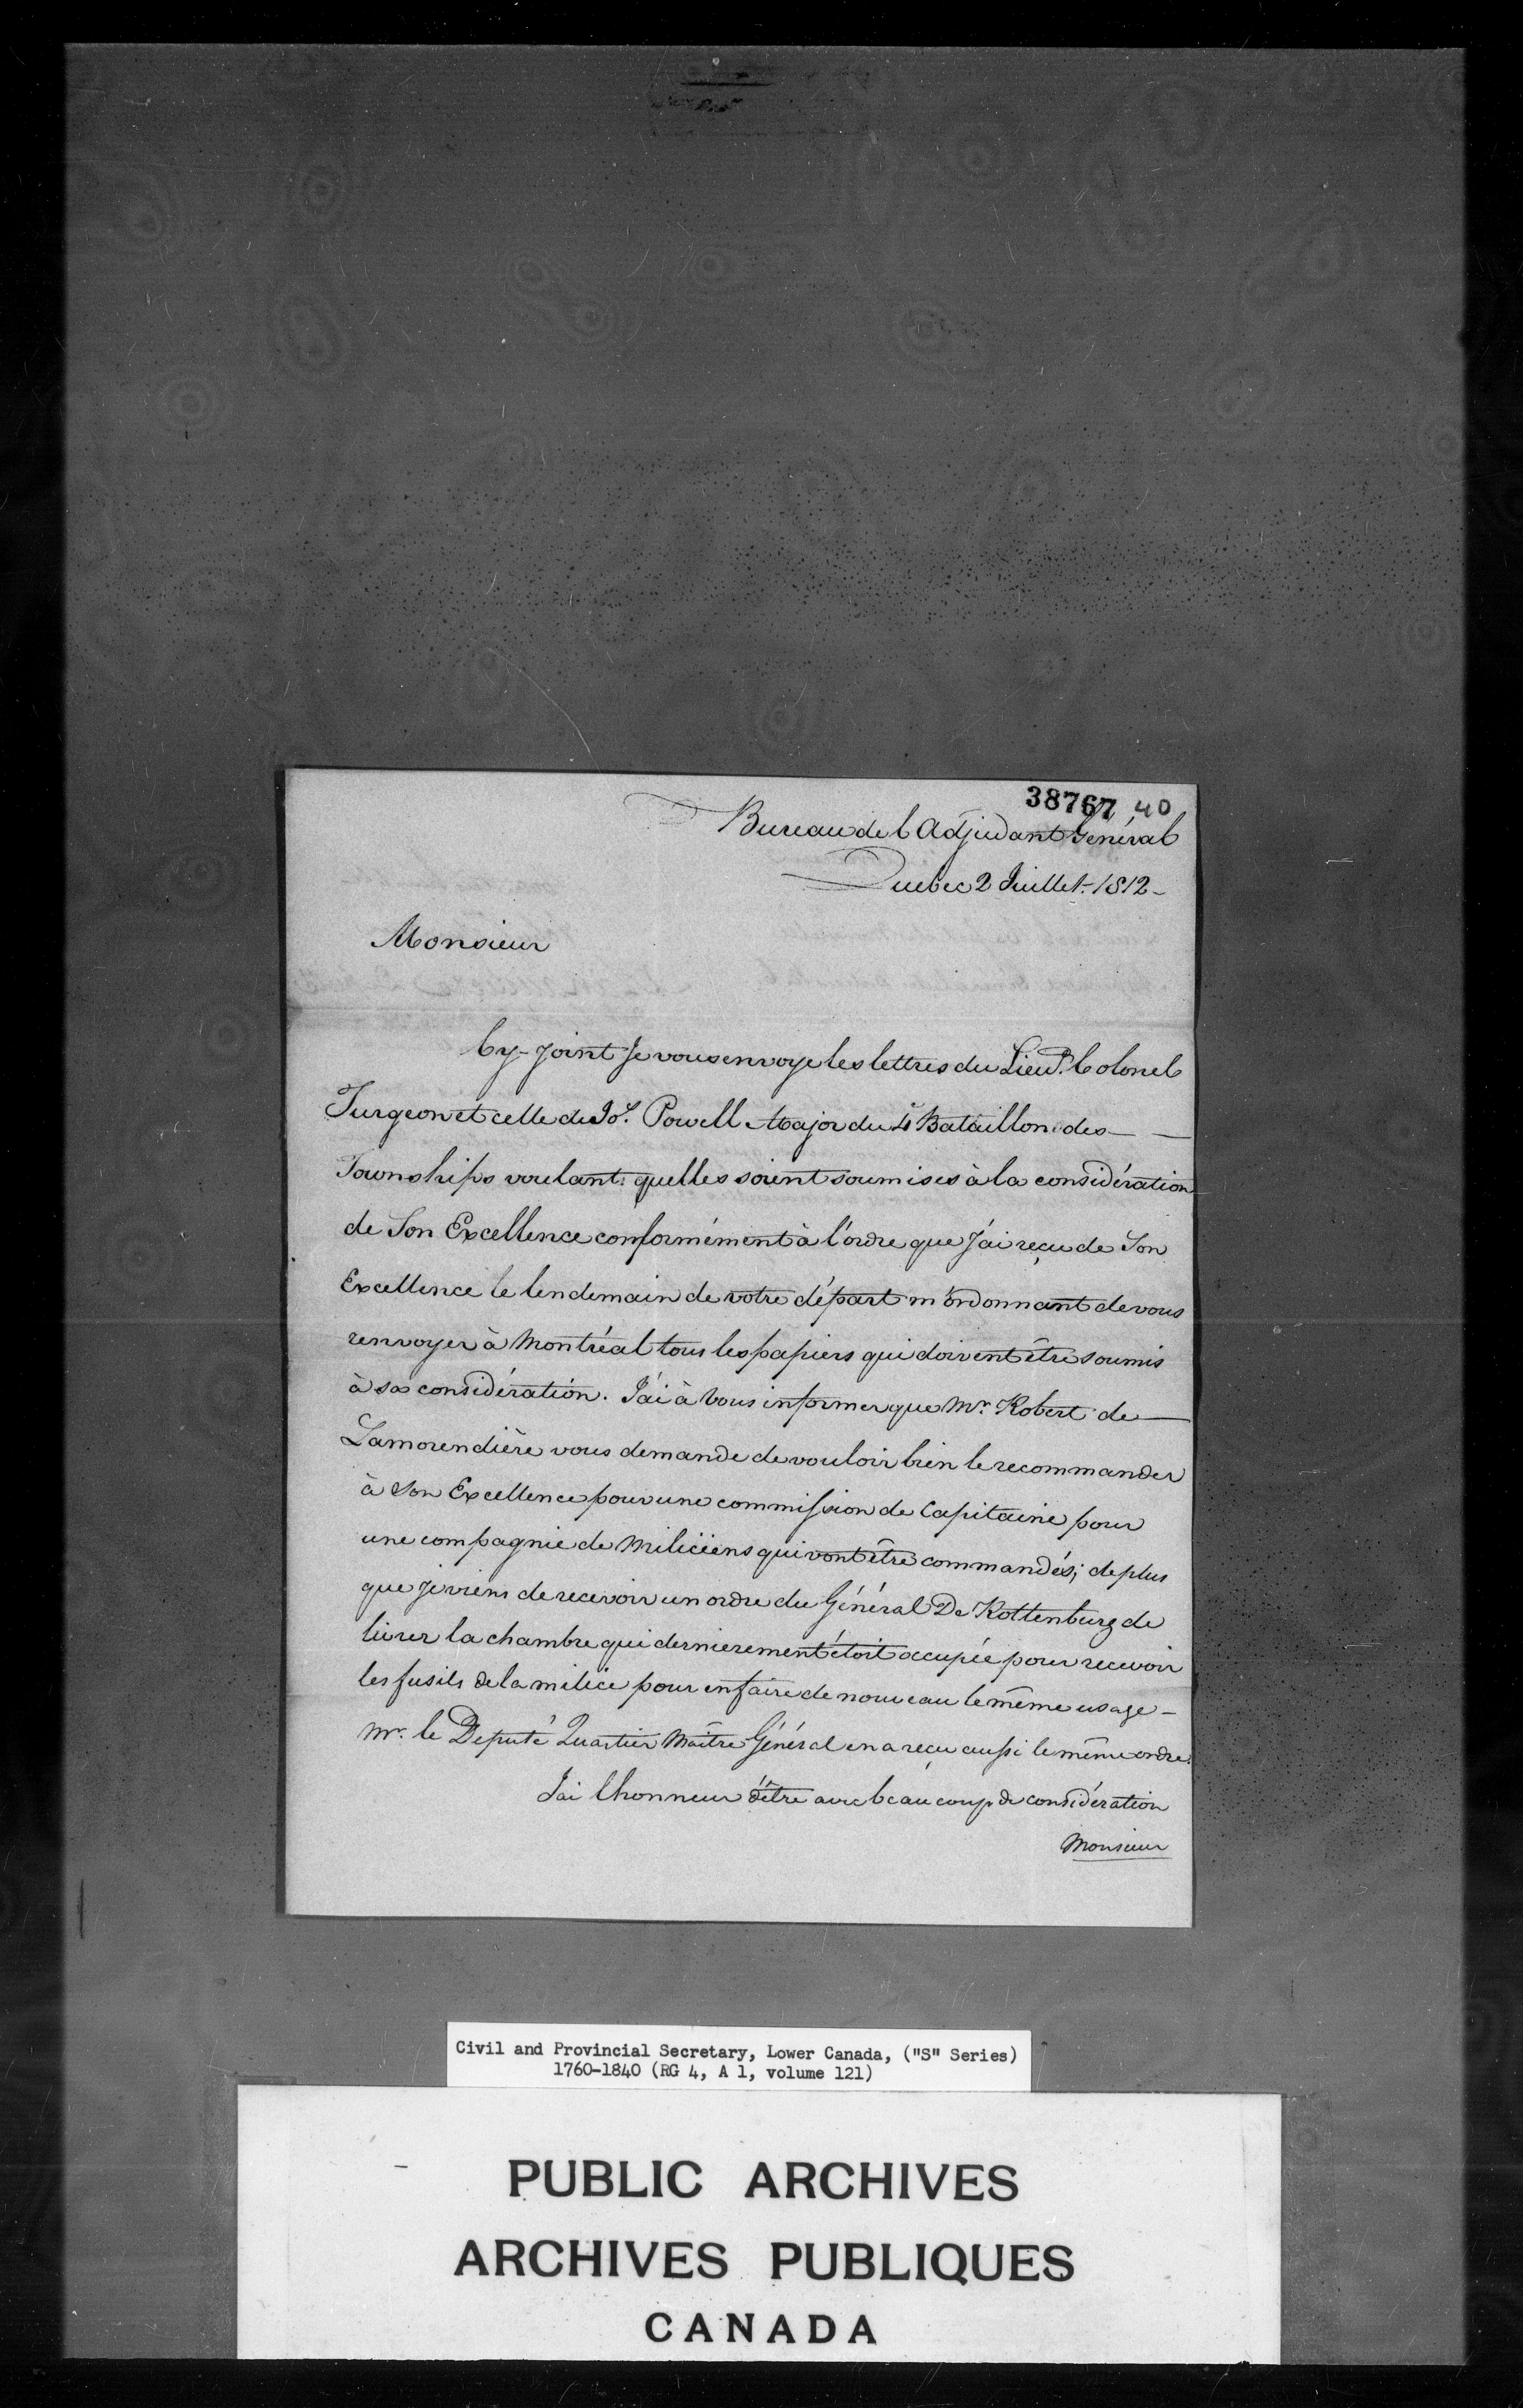 38767 40
Bureau de l Adjudant Général
Quebec 2 Juillet 1812 -
Monsieur
Cy-joint je vous envoye les lettres du Lieut. Colonel
Turgeon et celle de Jos. Powell Major du 4e Bataillon des
Townships voulant quelles soient soumises à la considération
de Son Excellence conformément à l'ordre que j'ai reçu de Son
Excellence le lendemain de votre départ m'ordonnant de vous
renvoyer à Montréal tous les papiers qui doivent être soumis
à sa considération. J'ai à vous informer que Mr. Robert de
Lamorendière vous demande de vouloir bien le recommander
à Son Excellence pour une commission de Capitaine pour
une compagnie de Miliciens qui vont être commandés; de plus
que je viens de recevoir un ordre du Général De Rottenburg de
livrer la chambre qui dernierement étoit occupée pour recevoir
les fusils de la milice pour en faire de nouveau le même usage -
Mr. le Deputé Quartier Maître Général en a reçu aussi le même ordre.
J'ai lhonneur d'être avec beaucoup de considération
Monsieur
Civil and Provincial Secretary, Lower Canada, ("S" Series)
1760-1840 (RG 4, A 1, volume 121)
PUBLIC ARCHIVES
ARCHIVES PUBLIQUES
CANADA